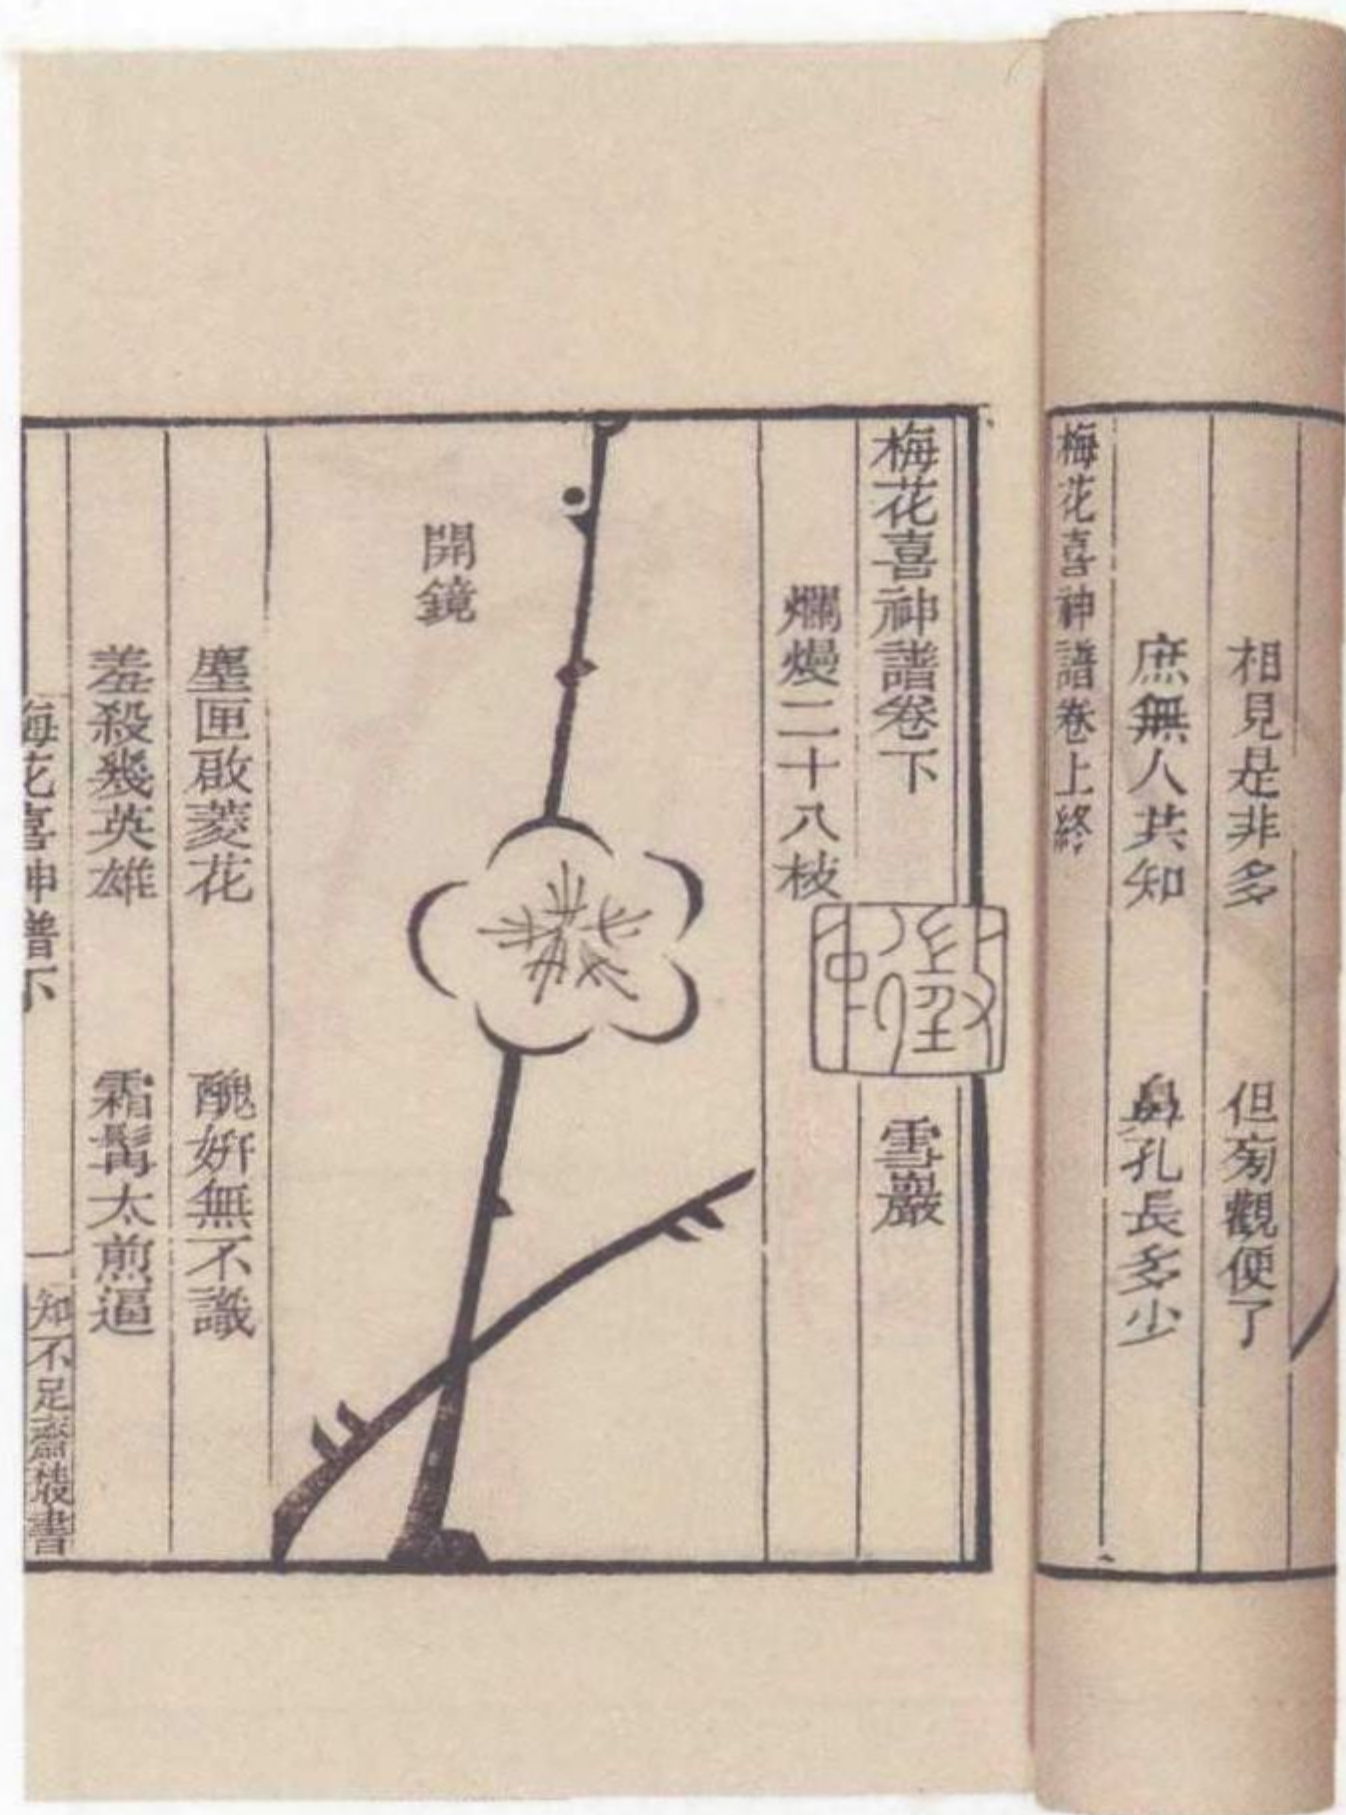 相見是非多　但旁觀便了
庶無人共知　鼻孔長多少
梅花喜神譜卷上終
梅花喜神譜卷下　雪巖
爛熳二十八枝
開鏡
塵匣啟菱花　醜妍無不識
羞殺幾英雄　霜髯太煎逼
梅花喜神譜下
知不足齋叢書